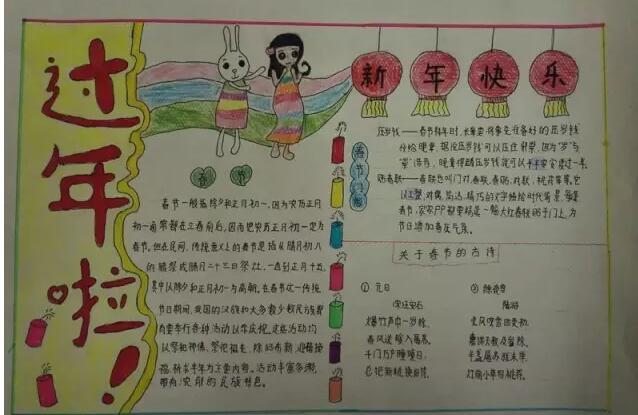 过年啦！
新年快乐
春节
春节一般指除夕和正月初一。因为农历正月
初一通常都在立春前后，因而把农历正月初一定为
春节。但在民间，传统意义上的春节是指从腊月初八
的腊祭或腊月二十三日祭灶，一直到正月十五，
其中以除夕和正月初一为高潮。在春节这一传统
节日期间，我国的汉族和大多数少数民族都
有要举行各种活动以示庆祝。这些活动均
以祭祀神佛、祭奠祖先、除旧布新、迎禧接
福、祈求丰年为主要内容。活动丰富多彩，
带有浓郁的民族特色。
春节习俗
压岁钱——春节拜年时，长辈要将事先准备好的压岁钱
分给晚辈，据说压岁钱可以压住邪祟，因为"岁"与
"祟"谐音，晚辈得到压岁钱就可以平平安安度过一岁。
贴春联——春联也叫门对、春贴、对联、对子、桃符等，它
以工整、对偶、简洁、精巧的文字描绘时代背景，
春节，家家户户都要精选一幅大红春联贴于门上，为
节日增加喜庆气氛。
关于春节的古诗
① 元日
宋 王安石
爆竹声中一岁除，
春风送暖入屠苏。
千门万户瞳瞳日，
总把新桃换旧符。
② 除夜雪
陆游
北风吹雪四更初，
嘉瑞天教及岁除。
半盏屠苏犹未举，
灯前小草写桃符。